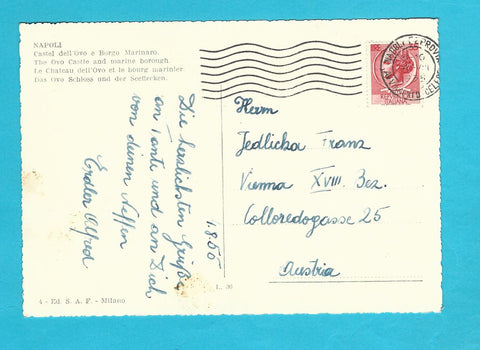 NAPOLI
Castel dell'Ovo e Borgo Marinaro.
The Ovo Castle and marine borough.
Le Chateau dell'Ovo et le bourg marinier.
Das Ovo Schloss und der Seeflecken.
Die herzlichsten Grüße
an Tante und an Dich
von deinen Neffen
Erdler Alfred
1855
Herrn
Jedlicka Franz
Vienna XVIII. Bez.
Colloredogasse 25
Austria
NAPOLI FERROVIA
ITALIANA
L. 30
4 - Ed. S. A. F. - Milano